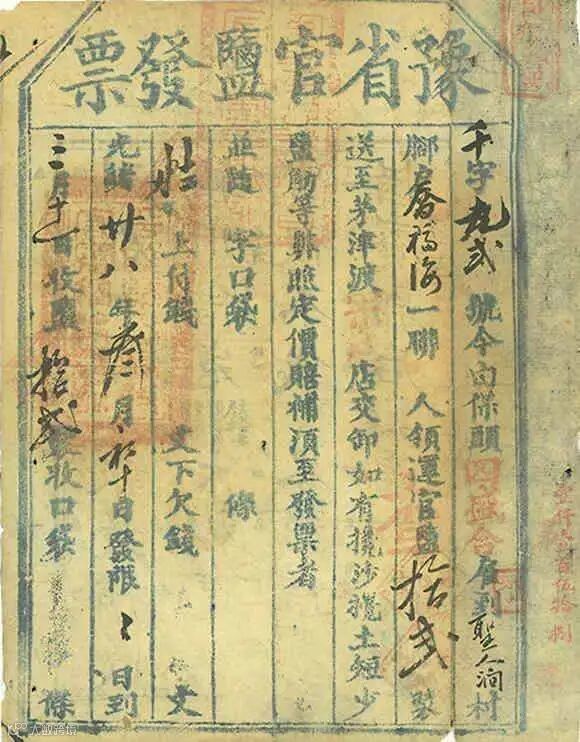 豫省官鹽發票
千字九弍號今向保頭四盛合雇到聖人澗村
腳喬福海一聯 人領運官鹽拾弍袋
送至茅津渡 店交卸如有攙沙攙土短少
鹽觔等弊照定價賠補須至發票者
並隨 字口袋 條
上付錢 文下欠錢 文
光緒廿八年叁月初十日發限 日到
三月十一日收鹽拾弍袋收口袋 條
壹仟 百伍拾捌